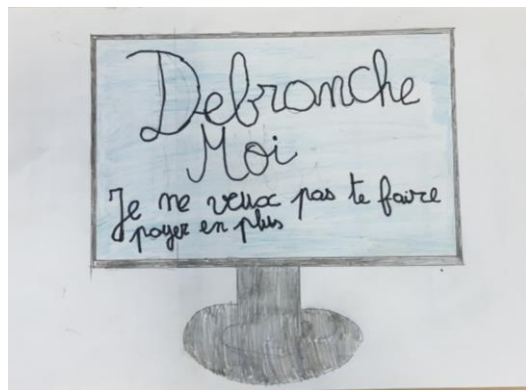 Debranche
Moi
Je ne veux pas te faire
payer en plus